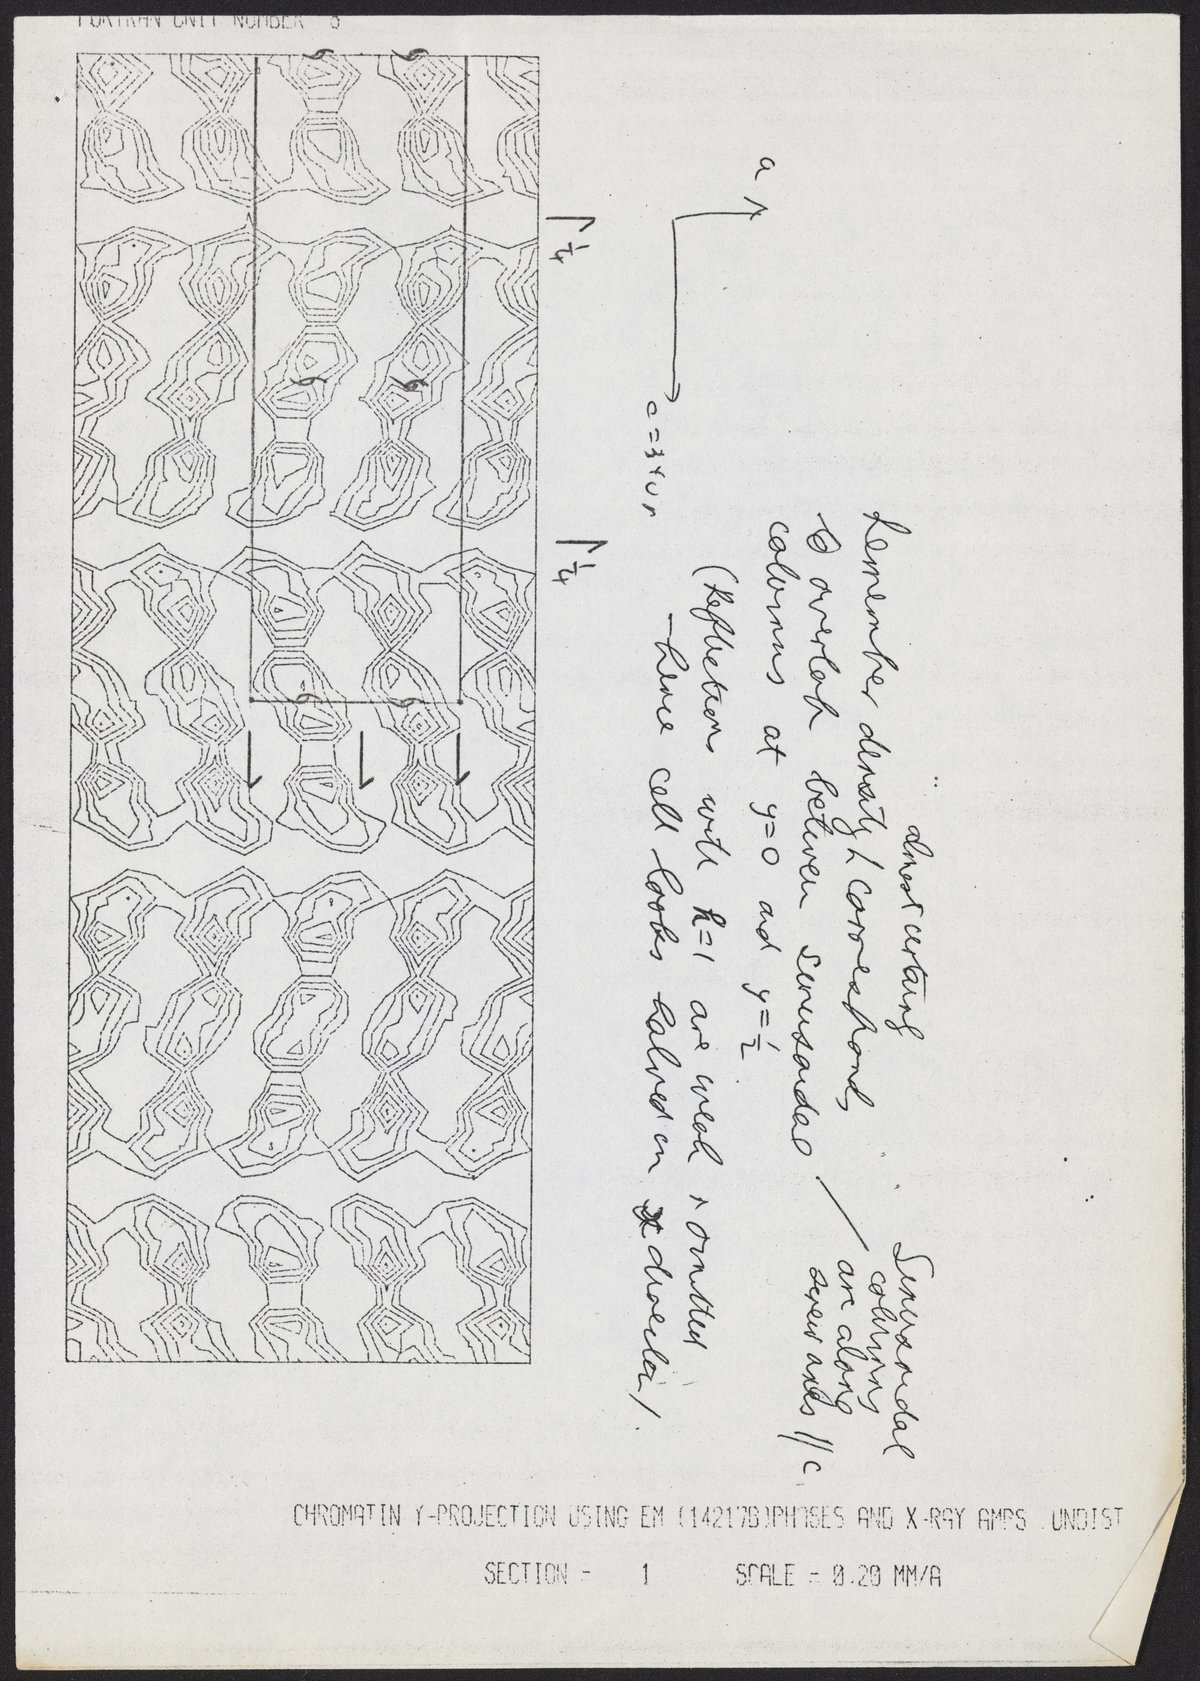 FORTRAN UNIT NUMBER 8
1/4
1/4
a
c = 340 Å
almost certainly
Remember density / corresponds
to overlap between sinusoidal
columns at y=0 and y=1/2
(Reflections with h=1 are weak & omitted
- hence cell looks halved in x direction)
Sinusoidal
columns
are along
screw axes //c
CHROMATIN Y-PROJECTION USING EM (14217B)PHASES AND X-RAY AMPS .UNDIST
SECTION - 1 SCALE = 0.20 MM/A